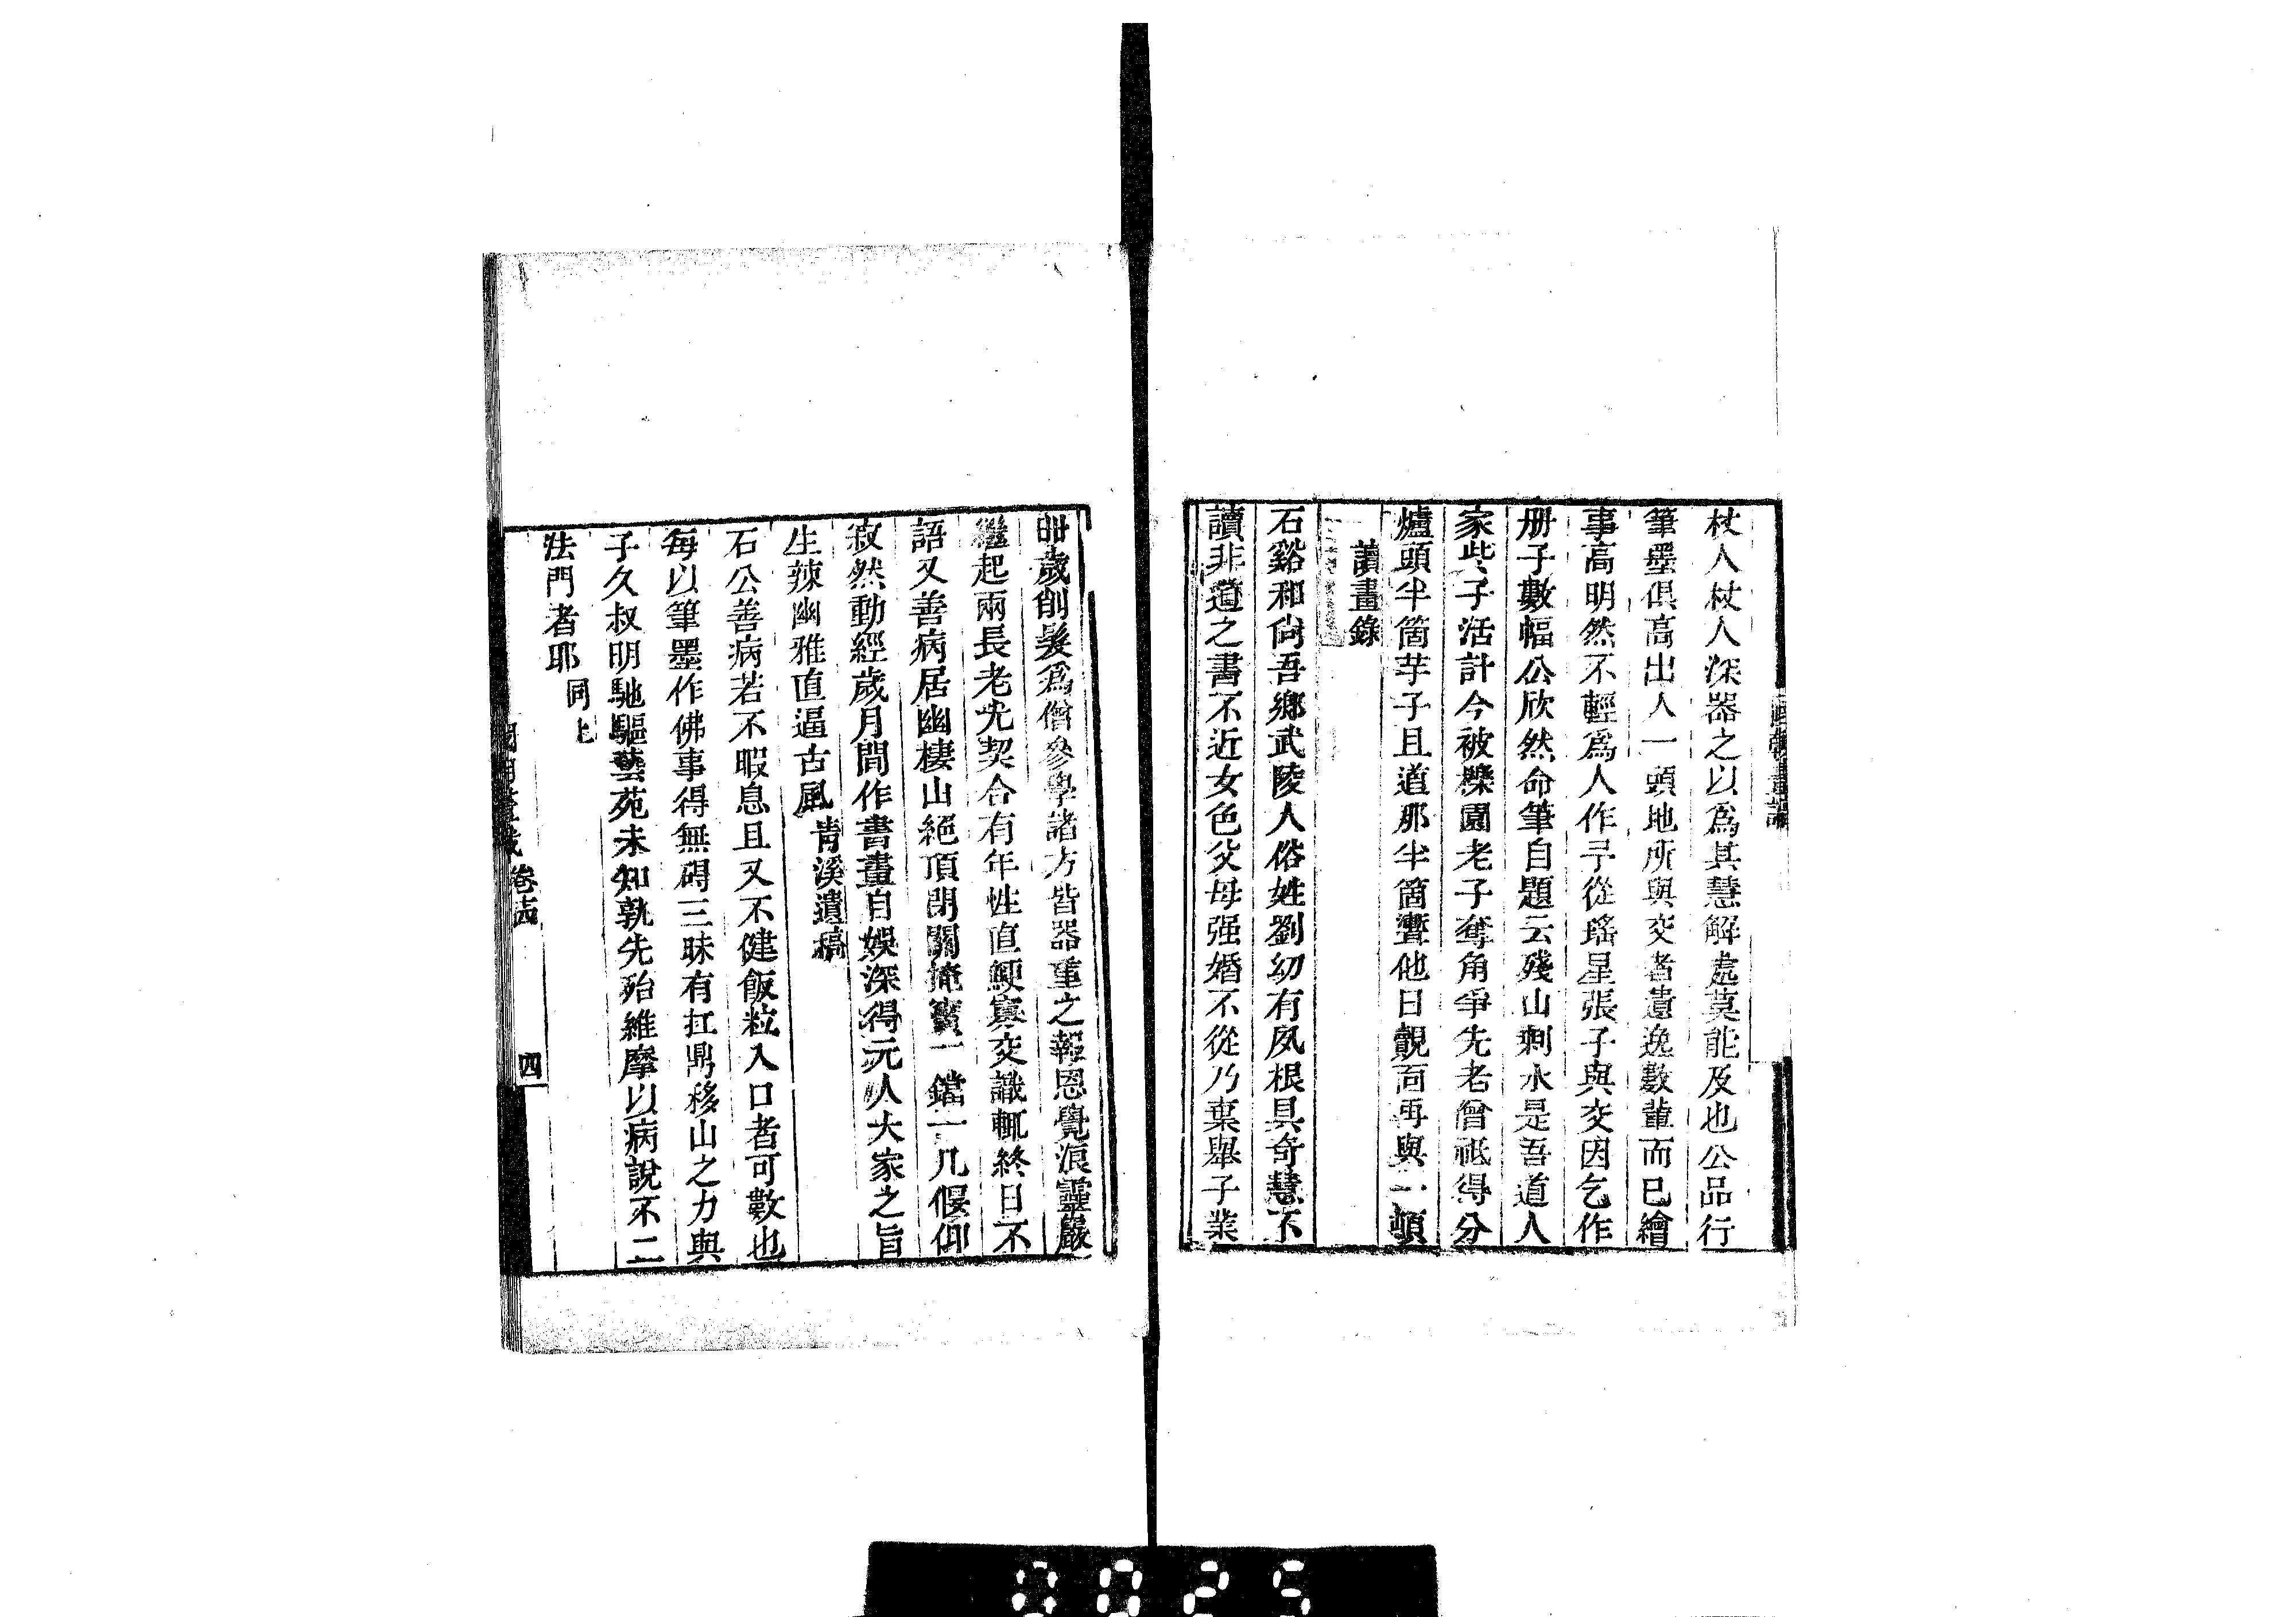 杖人杖人深器之以爲其慧解處莫能及也公品行
筆墨俱高出人一頭地所與交者遺逸數輩而已繪
事高明然不輕爲人作予從瑤星張子與交因乞作
册子數幅公欣然命筆自題云殘山剩水是吾道人
家些子活計今被櫟園老子奪角爭先老僧祗得分
爐頭半箇芋子且道那半箇聻他日覿面再與一頓
讀畫錄
石谿和尙吾鄉武陵人俗姓劉幼有夙根具奇慧不
讀非道之書不近女色父母强婚不從乃棄舉子業
歲削髮爲僧參學諸方皆器重之報恩覺浪靈巖
繼起兩長老尤契合有年性直鯁寡交識輒終日不
語又善病居幽棲山絕頂閉關掩竇一鐺一几偃仰
寂然動經歲月間作書畫自娛深得元人大家之旨
生辣幽雅直逼古風 靑溪遺稿
石公善病若不暇息且又不健飯粒入口者可數也
每以筆墨作佛事得無碍三昧有扛鼎移山之力與
子久叔明馳驅藝苑未知孰先殆維摩以病說不二
法門者耶 同上
卷古
四
0025